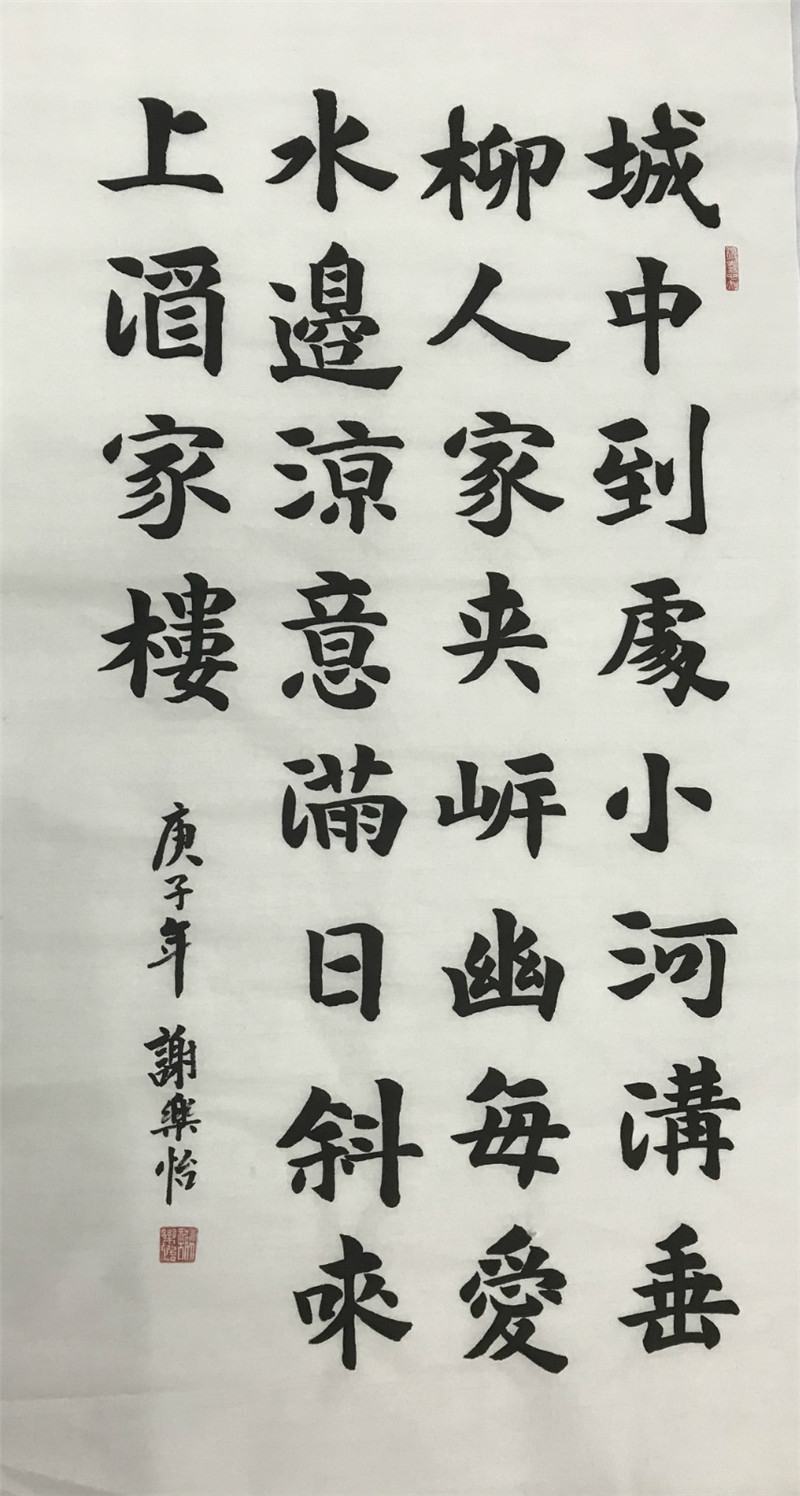 城中到處小河溝垂
柳人家夾岸幽每愛
水邊涼意滿日斜唻
上酒家樓
庚子年 謝樂怡